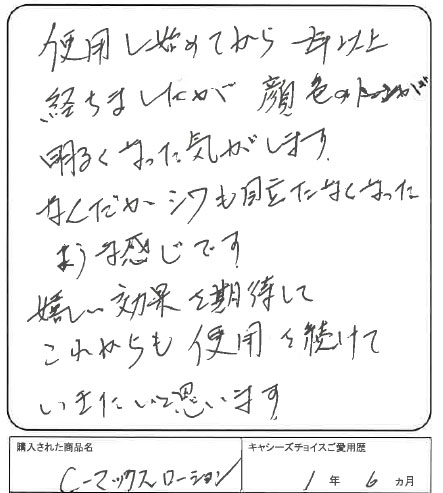 使用し始めてから 一年以上
経ちましたが 顔色のトーンが
明るくなった気がします。
なんだか シワも目立たなくなった
ような感じです
嬉しい効果を期待して
これからも 使用を続けて
いきたいと思います
購入された商品名
キャシーズチョイスご愛用歴
C-マックスローション
1 年 6 ヵ月